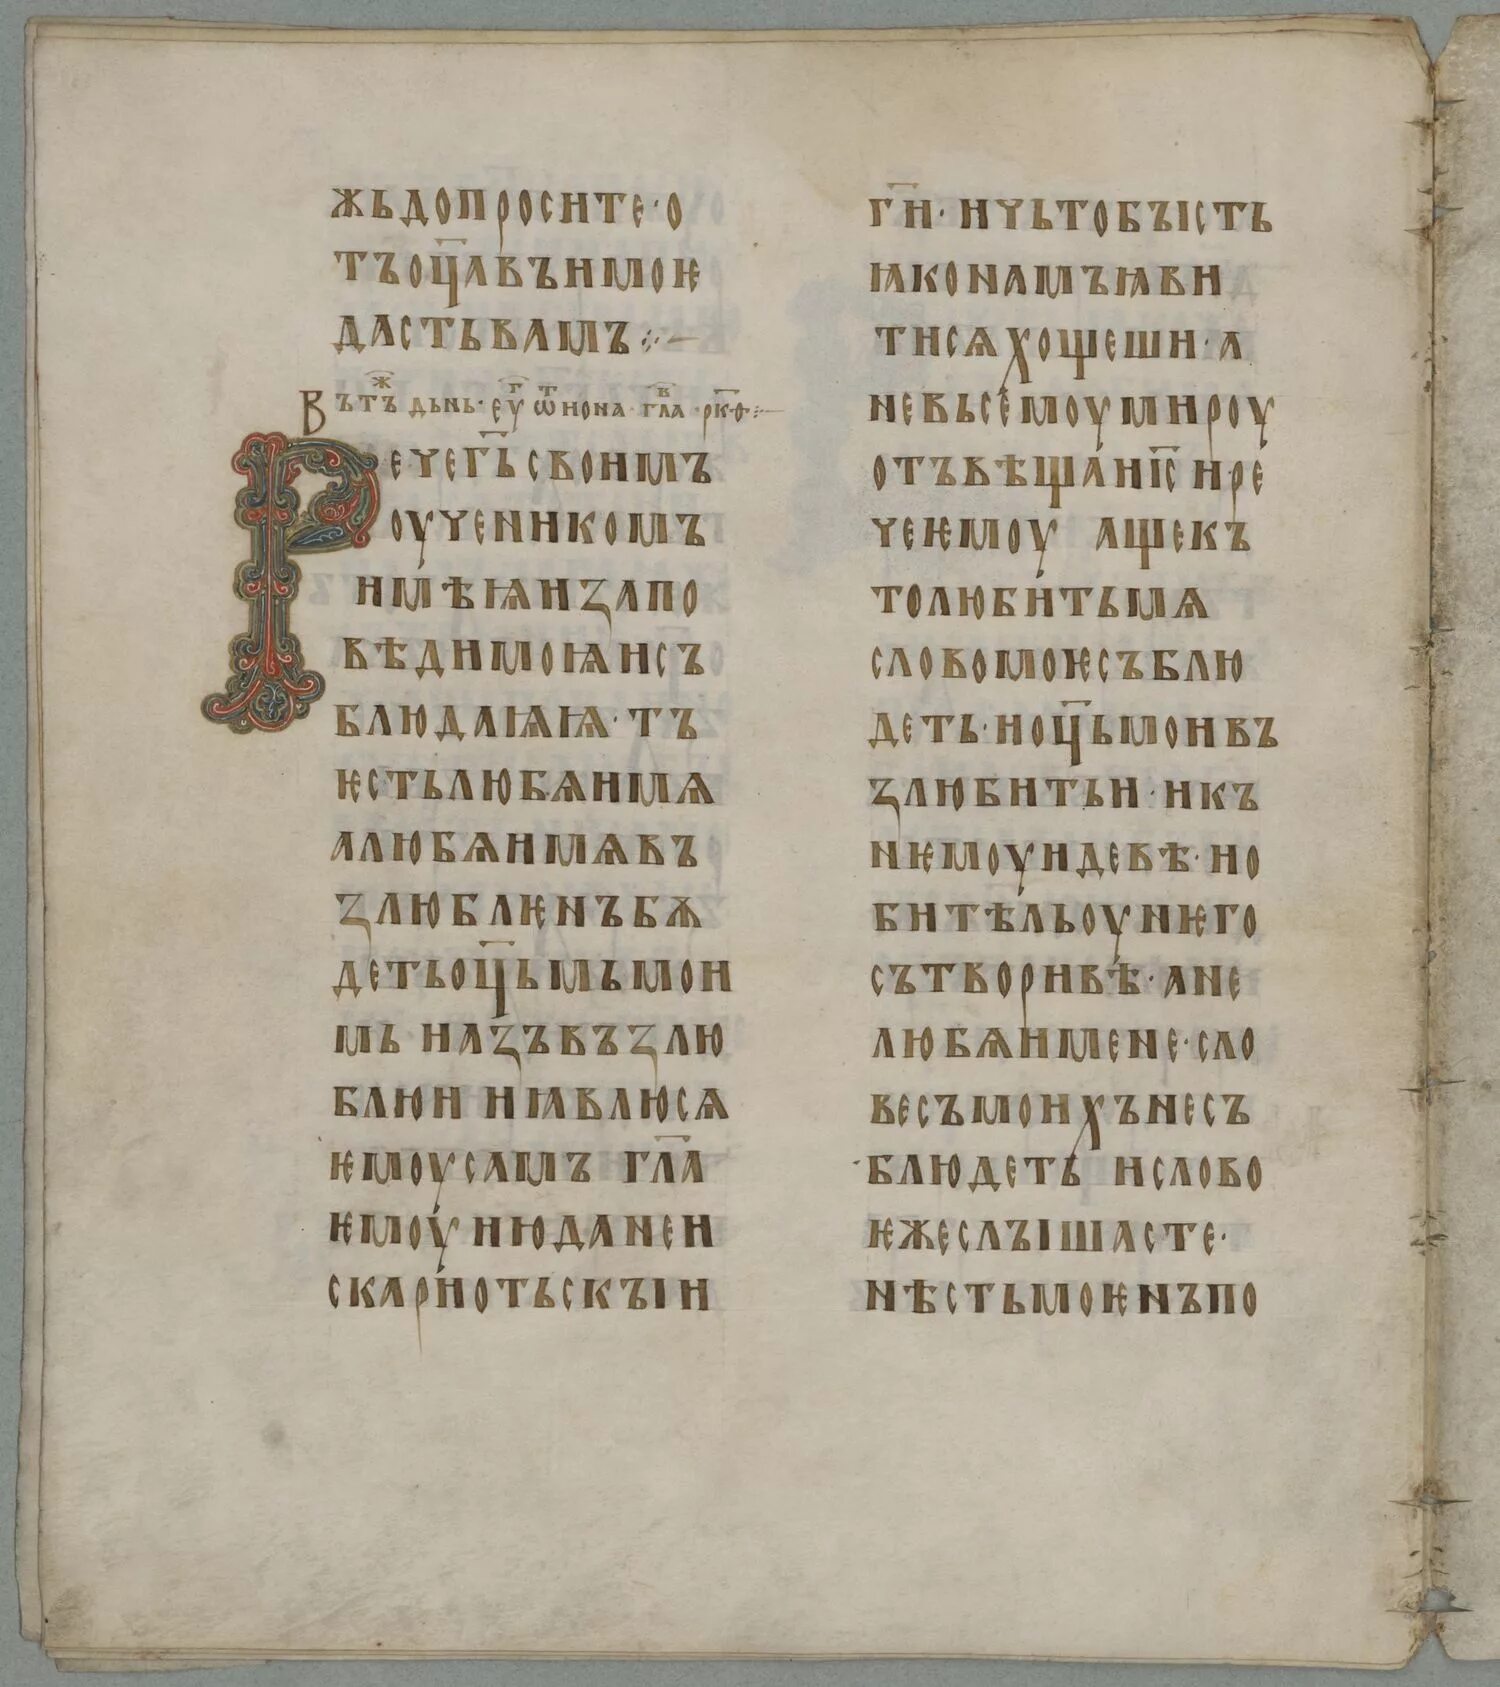 жьдопросите· о
тъоц҃авъимоѥ
дастьвамъ
Вътъж҃ дьнь· еуг҃ ѿиона· гл҃а· рк҃ѳ·
Речег҃ьсвоимъ
оученикомъ
имѣꙗизапо
вѣдимоꙗисъ
блюдаꙗꙗ· тъ
ѥстьлюбѧимѧ
алюбѧимѧвъ
злюблѥнъбѫ
детьоц҃ьмьмои
мь иазъвъзлю
блюи иꙗвлюсѧ
ѥмоусамъ гл҃а
ѥмоу июданеи
скариотьскъіи
г҃и· ичьтобъість
ꙗконамъꙗви
тисѧхощеши· а
невьсемоумироу
отъвѣщаіс҃ ире
чеѥмоу ащекъ
толюбитьмѧ
словомоѥсъблю
деть· иоц҃ьмоивъ
злюбитьи· икъ
нѥмоуидевѣ· ио
битѣльоунѥго
сътворивѣ· ане
любѧимене· сло
весъмоихънесъ
блюдеть ислово
ѥжеслъішасте·
нѣстьмоѥнъпо